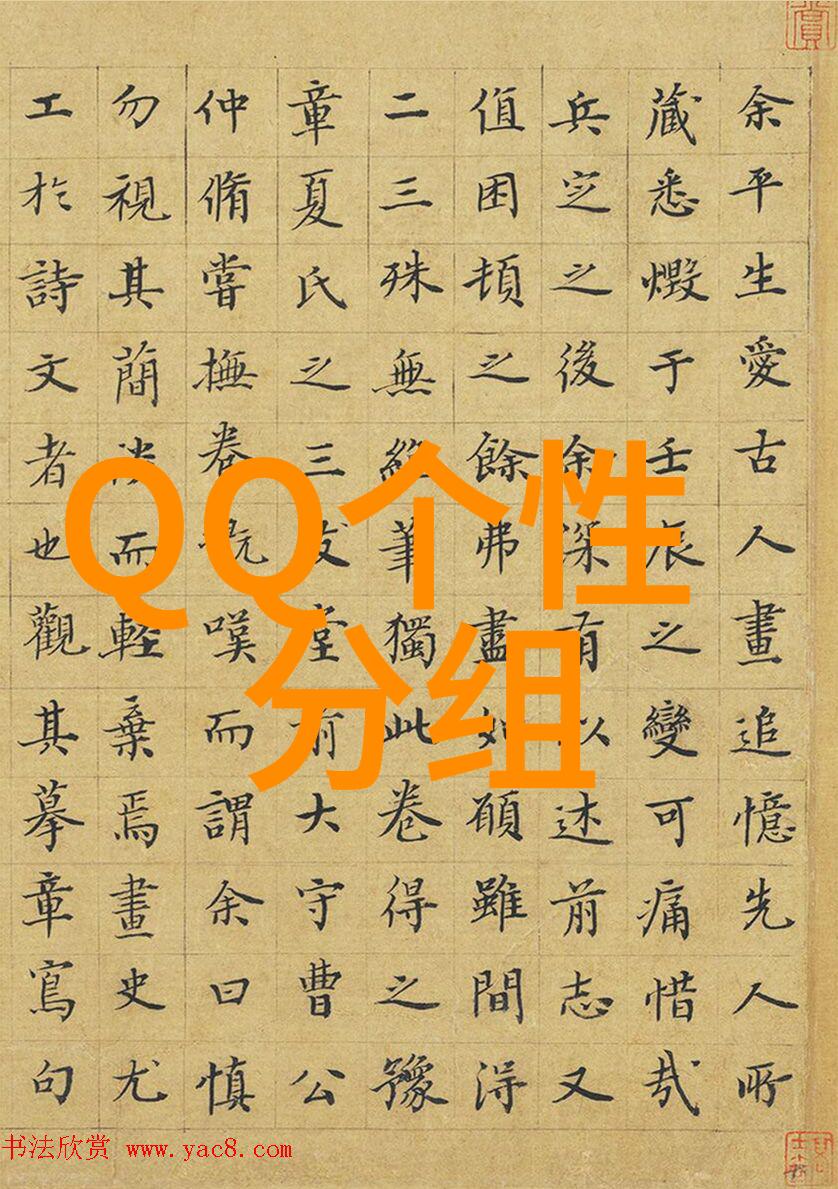 余平生愛古人畫追憶先人所
藏悉燬于壬辰之變可痛惜哉
兵定之後余深有以述前志又
值困頓之餘弗盡如願雖間得
二三殊無絕筆獨此卷得之豫
章夏氏之三友堂前大守曹公
仲脩嘗撫卷玩嘆而謂余曰慎
勿視其簡淡而輕棄焉畫史尤
工扵詩文者也觀其摹章寫句
QQ个性
分组
书法欣赏 www.yac8.com